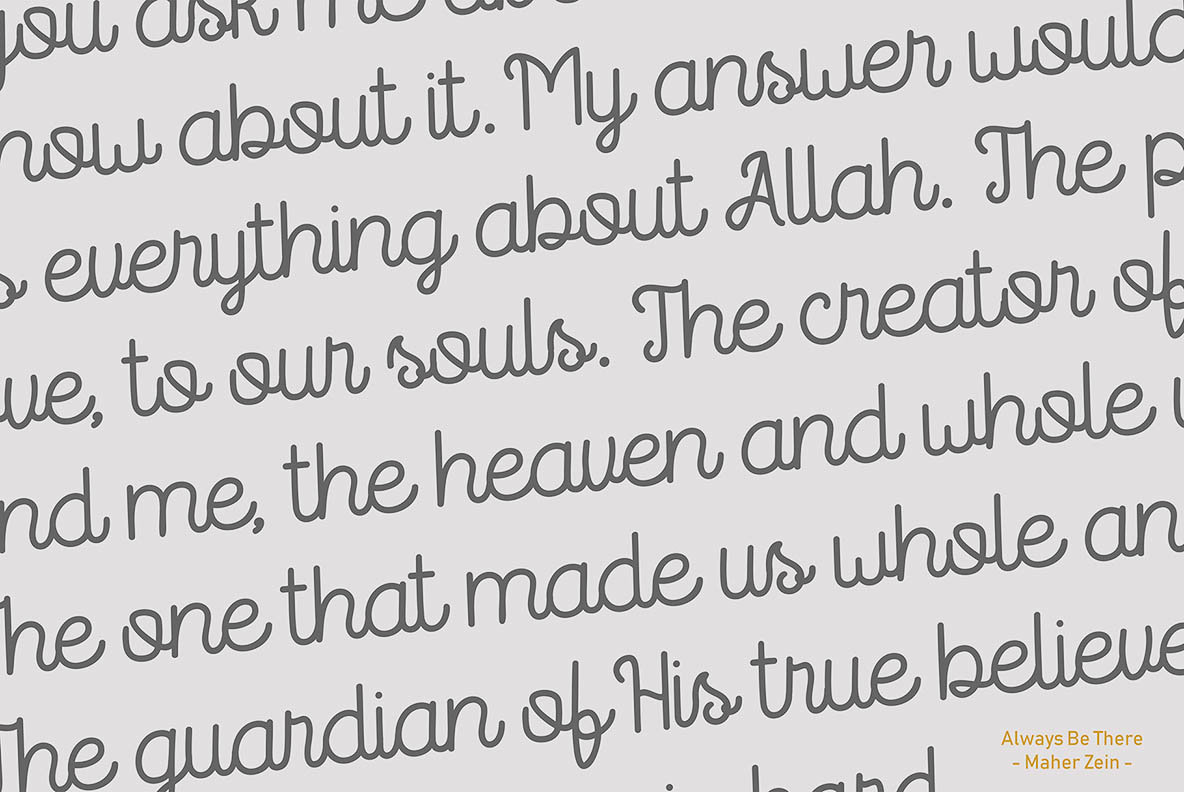 you ask me
now about it. My answer would
everything about Allah. The
to our souls. The creator of
me, the heaven and whole
The one that made us whole
The guardian of His true believe
hard
Always Be There
- Maher Zein -